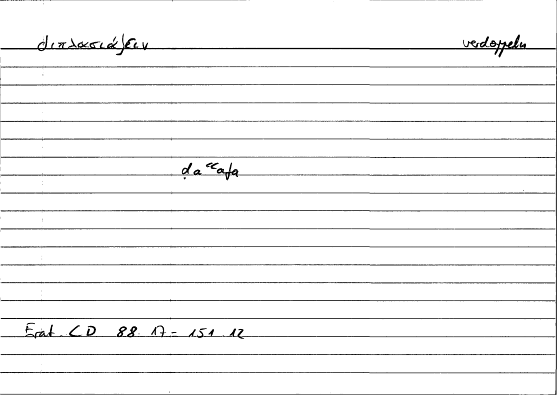 διπλασιάζειν verdoppeln
ḍaʿʿafa
Erat. CD 88.17 = 151.12